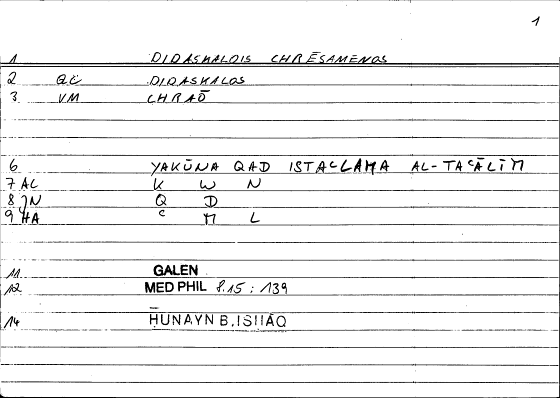 1
1 DIDASKALOIS CHRĒSAMENOS
2 QC DIDASKALOS
3 VM CHRAŌ
6 YAKŪNA QAD ISTAᶜLAMA AL-TAᶜĀLĪM
7 AL K W N
8 JN Q D
9 HA ᶜ M L
11 GALEN
12 MED PHIL 8.15 : 139
14 ḤUNAYN B. ISḤĀQ